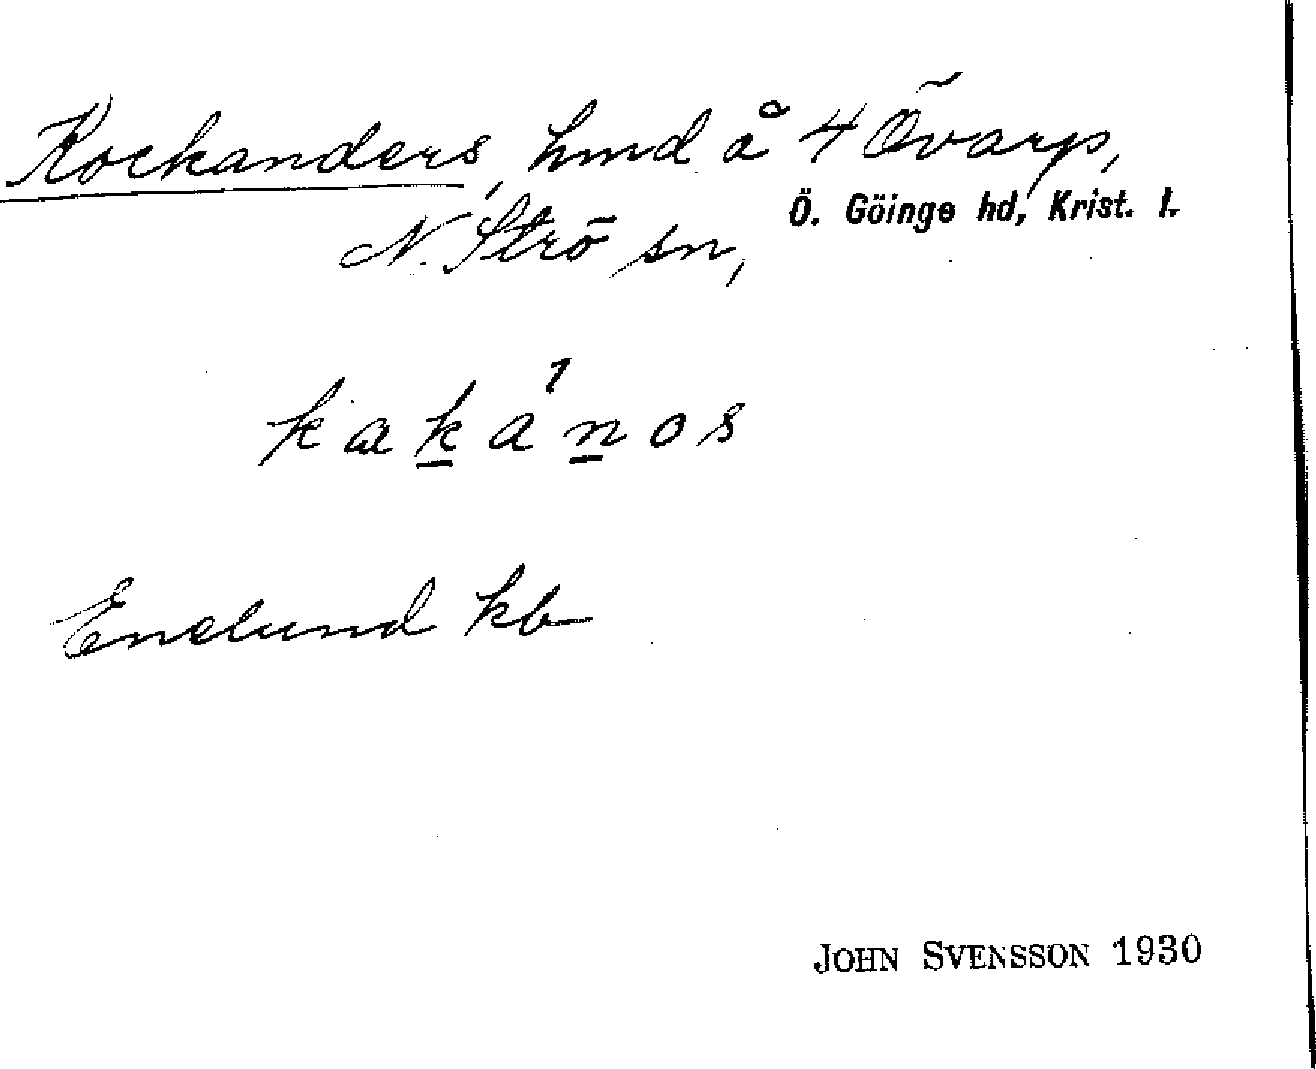 Kockanders, hmd å 4 Övarp,
Ö. Göinge hd, Krist. l.
N. Strö sn,
kakános
Enslund kb
JOHN SVENSSON 1930